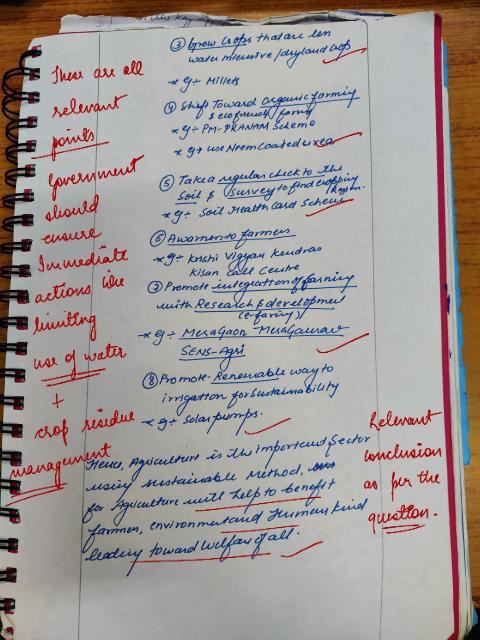 ③ Grow Crops that are less
water intensive / dryland crop
*eg ÷ Millets
④ Shift Toward Organic farming
& ecofriendly farming
*eg ÷ PM-PRANAM Scheme
*eg ÷ use Neem Coated urea
⑤ Take a regular check to the
Soil & Survey to find cropping
Region.
*eg ÷ Soil Health Card Scheme
⑥ Awarness to farmers
*eg ÷ Krishi Vigyan Kendras
Kisan Call Centre
⑦ Promote integration of farming
with Research & development
(e-farming)
*eg ÷ MeraGaon-MeraGaurav
SENS-Agri
⑧ Promote Renewable way to
irrigation for Sustainability
*eg ÷ Solar pumps.
Hence, Agriculture is the important Sector
using sustainable Method,
for Agriculture will help to benefit
farmer, environment and Human kind
leading toward Welfare of all.
These are all
relevant
points
Government
should
ensure
Immediate
actions like
limiting
use of water
+
crop residue
management
Relevant
conclusion
as per the
question.